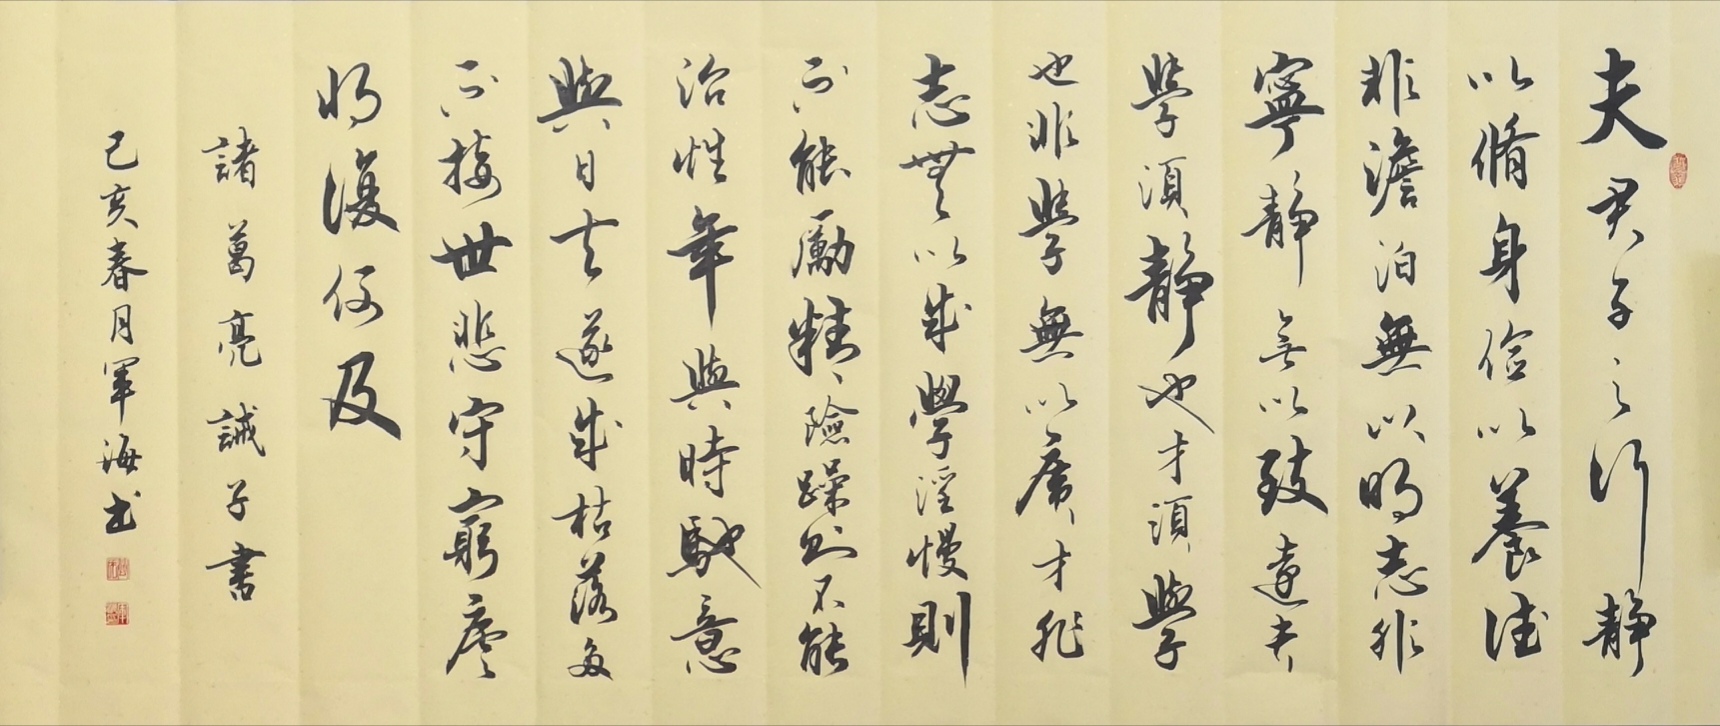 夫君子之行静
以脩身儉以養德
非澹泊無以明志非
寧静無以致遠夫
學須静也才須學
也非學無以廣才非
志無以成學淫慢則
不能勵精險躁則不能
治性年與時馳意
與日去遂成枯落多
不接世悲守窮廬
將復何及
諸葛亮誡子書
己亥春月軍海书